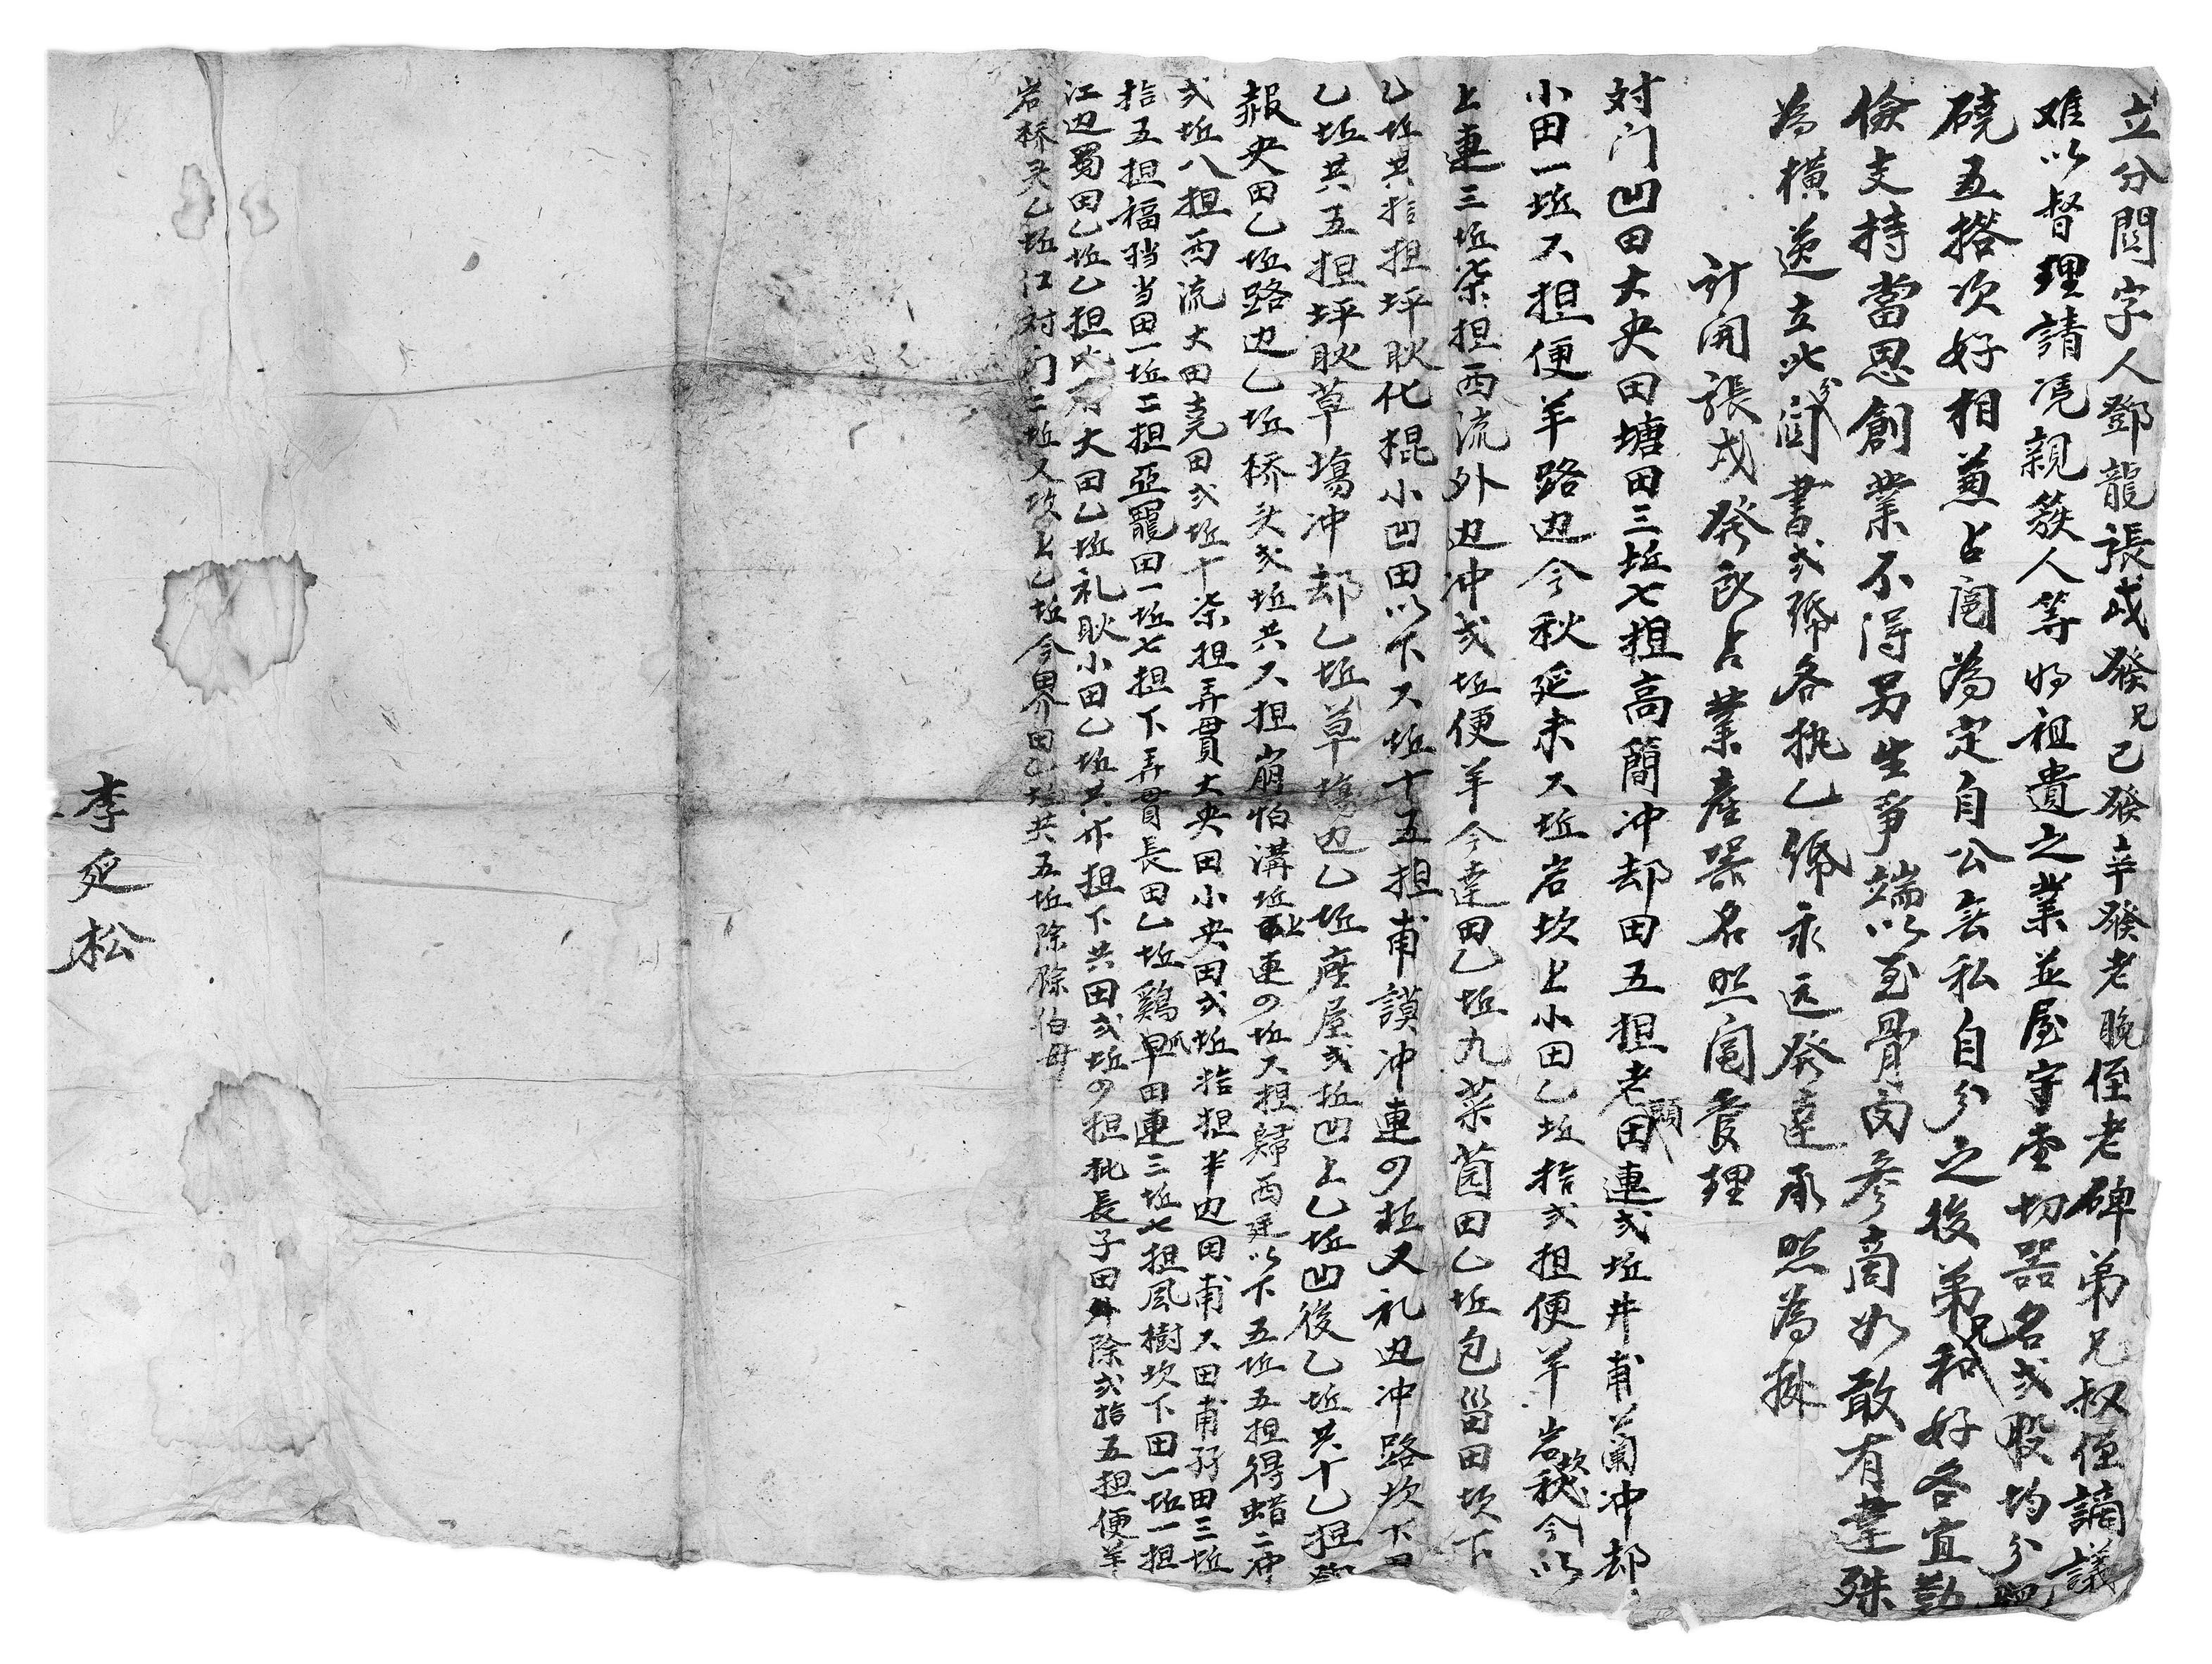 立分関字人鄧龍張成發兄己發辛發老晚侄老碑弟兄叔侄謫議
难以督理請凴親簇人等将祖遺之業並屋宇壹切器名弍股均分
硗五搭次好相兼占阄為定自公無私自分之後弟兄和好各宜勤
儉支持當思創業不得另生爭端以至骨肉參商如敢有違殊
為横逆立此分関書弍帋各执乙帋永远發達承照為據
计開張成癸郎占業產器名照阄管理
対门凹田大央田塘田三坵七担高簡冲却田五担老関田連弍坵井甫蘭冲却
小田一坵又担便羊路边今秋延未又坵岩坎上小田乙坵拾弍担便羊岩坎秋今以
上連三坵柒担西流外边冲弍坵便羊今達田乙坵九菜园田乙坵包甾田坎下
乙坵共拾担坪耿化棍小凹田以下又坵十五担甫謨冲連四坵又礼边冲路坎下田
乙坵共五担坪耿草塲冲却乙坵草塲边乙坵座屋弍坵凹上乙坵凹後乙坵共十乙担
赧央田乙坵路边乙坵桥头弍坵共又担崩怕溝坵上連四坵又担歸西廷以下五坵五担得蜡二冲
弍坵八担西流大田尭田弍坵十柒担弄貫大央田小央田弍坵拾担半边田甫又田甫孖田三坵
拾五担福挡当田一坵二担亞龍田一坵七担下弄貫長田乙坵鷄爪旱田連三坵七担風樹坎下田一坵一担
江边蜀田乙坵乙担大田乙坵礼耿小田乙坵共亦担下共田弍坵四担批長子田外除弍拾五担便羊
岩桥头乙坵江対门二坵又坎上乙坵今界田乙坵共五坵除除伯母
李延松